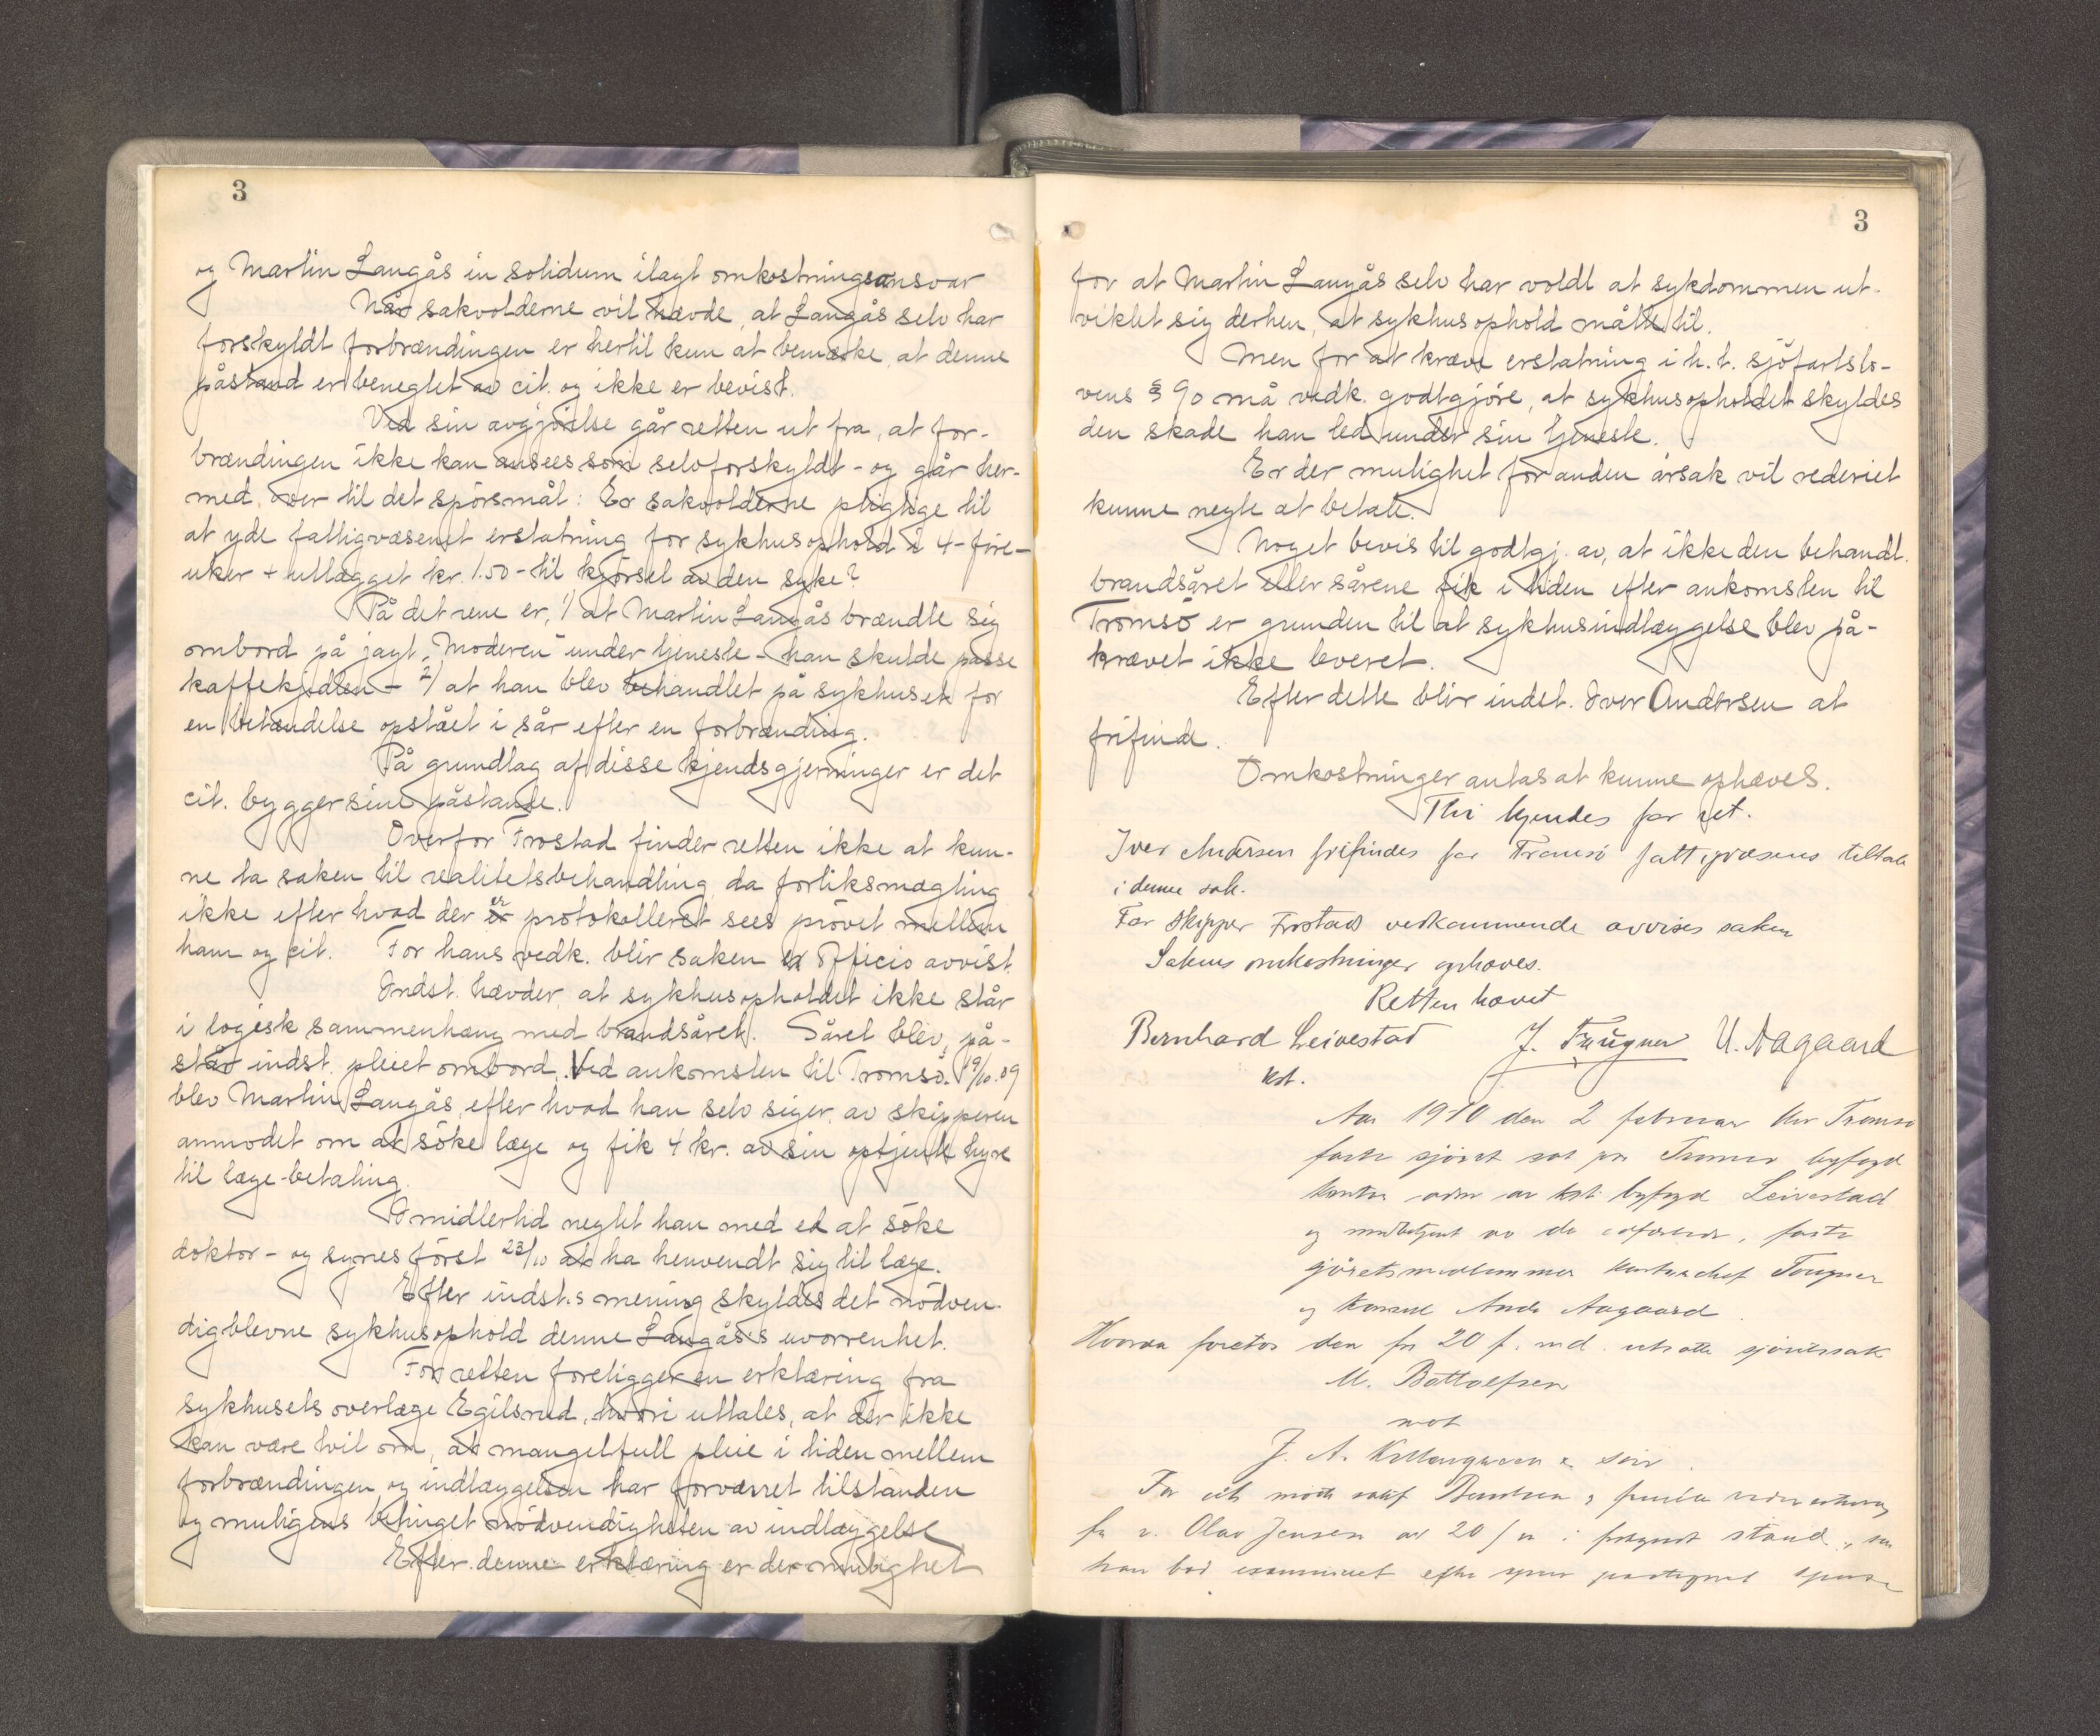 3
og Martin Langås in solidum ilagt omkostningsansvar
Når sakvolderne vil hævde, at Langås selv har
forskyldt forbrændingen er hertil kun at bemerke, at denne
påstand er beneglet av cit. og ikke er bevist.
Ved sin avgjörelse går retten ut fra, at for-
brændingen ikke kan ansees som selvforskyldt - og går her-
med over til det spörsmål: Er sakvolderne pligtige til
at yde fattigvæsenet erstatning for sykhusophold i 4-fire-
uker + utlægget kr. 1.50 - til kjörsel av den syke?
På det rene er, 1/ at Martin Langås brændte sig
ombord på jagt „Moderen" under tjeneste - han skulde passe
kaffekjedlen - 2/ at han blev behandlet på sykhuset for
en betændelse opstået i sår efter en forbrænding.
På grundlag af disse kjendsgjerninger er det
cit. bygger sine påstande.
Overfor Frostad finder retten ikke at kun-
ne ta saken til realitetsbehandling da forliksmægling
ikke efter hvad der er protokolleret sees prövet mellem
ham og cit. For hans vedk. blir saken ex officio avvist.
Indst. hævder, at sykhusopholdet ikke står
i logisk sammenhæng med brandsåret. Såret blev, på-
står indst. pleiet ombord. Ved ankomsten til Tromsö 19/10.09
blev Martin Langås, efter hvad han selv siger, av skipperen
anmodet om at söke læge og fik 4 kr. av sin optjente hyre
til læge-betaling.
Imidlertid neglet han med ed at söke
doktor - og synes först 23/10 at ha henvendt sig til læge.
Efter indst.s mening skyldes det nödven-
digblevne sykhusophold denne Langås's uvorrenhet.
For retten foreligger en erklæring fra
sykhusets overlæge Egilsrud, hvori uttales, at der ikke
kan være tvil om, at mangelfull pleie i tiden mellem
forbrændingen og indlæggelsen har forværret tilstanden
og muligens betinget nödvendigheten av indlæggelse
Efter denne erklæring er der mulighet
3
for at Martin Langås selv har voldt at sykdommen ut-
viklet sig derhen, at sykhusophold måtte til.
Men for at kræve erstatning i h. t. sjöfartslo-
vens § 90 må vedk. godtgjöre, at sykhusopholdet skyldes
den skade han led under sin tjeneste.
Er der mulighet for anden årsak vil rederiet
kunne negte at betale.
Noget bevis til godtgj. av, at ikke den behandl.
brandsåret eller sårene fik i tiden efter ankomsten til
Tromsö er grunden til at sykhusindlæggelse blev på-
krævet ikke leveret.
Efter dette blir indst. Iver Andersen at
frifinde.
Omkostninger antas at kunne ophæves.
Thi kjendes for ret.
Iver Andersen frifindes for Tromsö fattigvæsens tiltale
i denne sak.
For skipper Frostads vedkommende avvises saken
Sakens omkostninger ophæves.
Retten hævet
Bernhard Leivestad J. Tougner U. Aagaard
kst.
Aar 1910 den 2 februar blev Tromsö
faste sjöret sat paa Tromsö byfogd
kontor adm av kst. byfogd Leivestad
og av de, faste
sjöretsmedlemmer kontorchef Tougner
og konsul Aagaard
Hvorda foretos den fra 20 f. md. utsatte sjöretssak
M. Bottolfsen
mot
J. A. & sön
For cit mötte
fr v. Olav Jensen av 20/ i stand, som
han bad efter